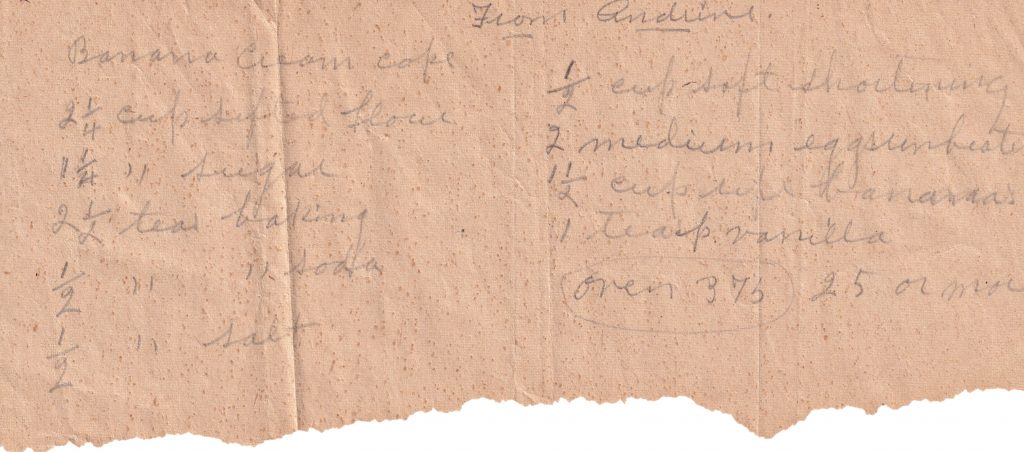 From Andrine.
Banana Cream cake
2 1/4 cup sifted flour
1 1/4 " sugar
2 1/2 teas baking
1/2 " " soda
1/2 " salt
1/2 cup soft shortening
2 medium eggs unbeate
1 1/2 cup bananas
1 teasp vanilla
oven 375 25 or mor